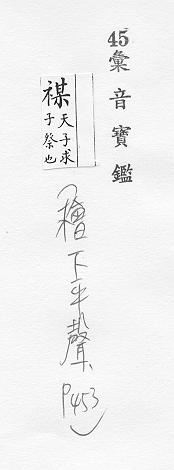 45彙音寶鑑
禖天子求
子祭也
檜下平聲
P453